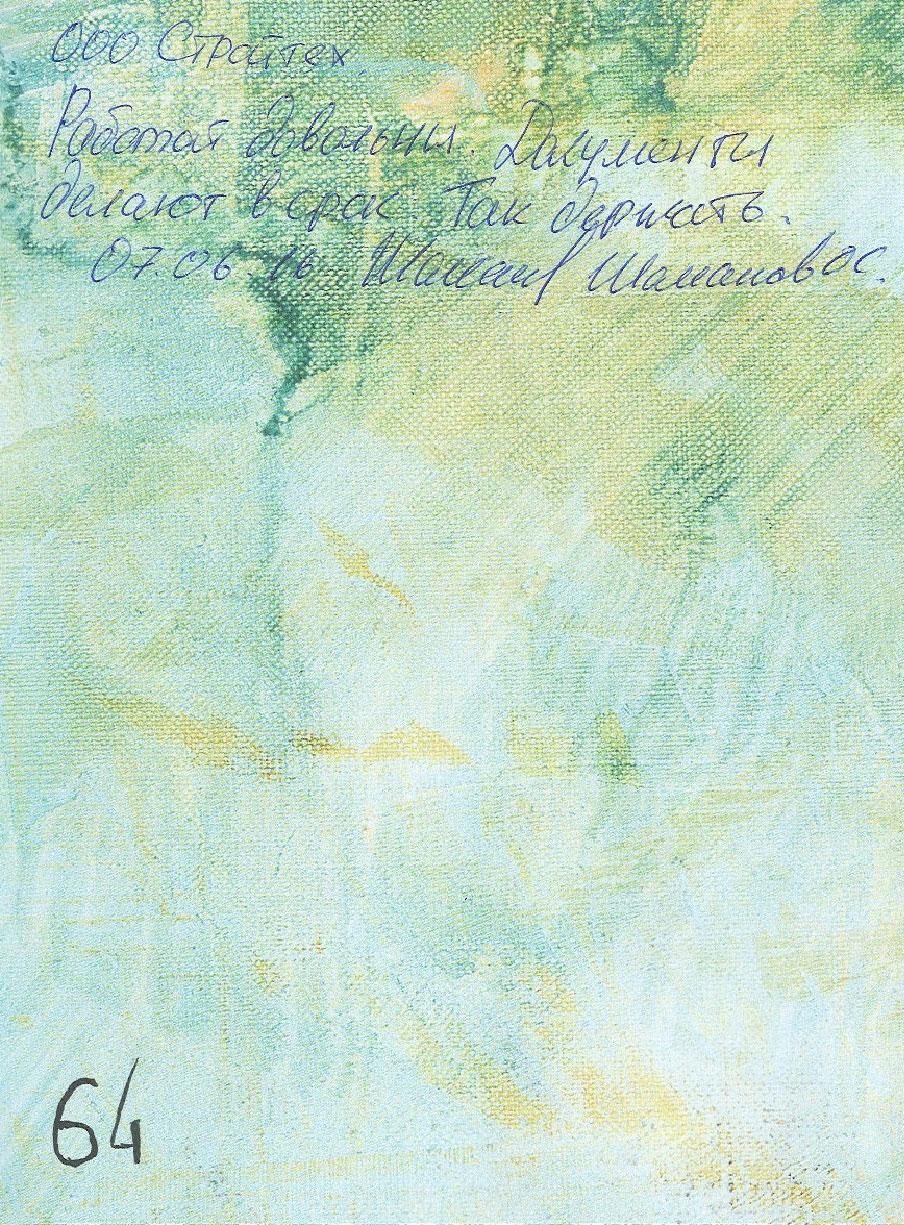 ООО Стройтех.
Работой довольны. Документы
делают в срок. Так держать.
07.06.16 Шаманов С.
64